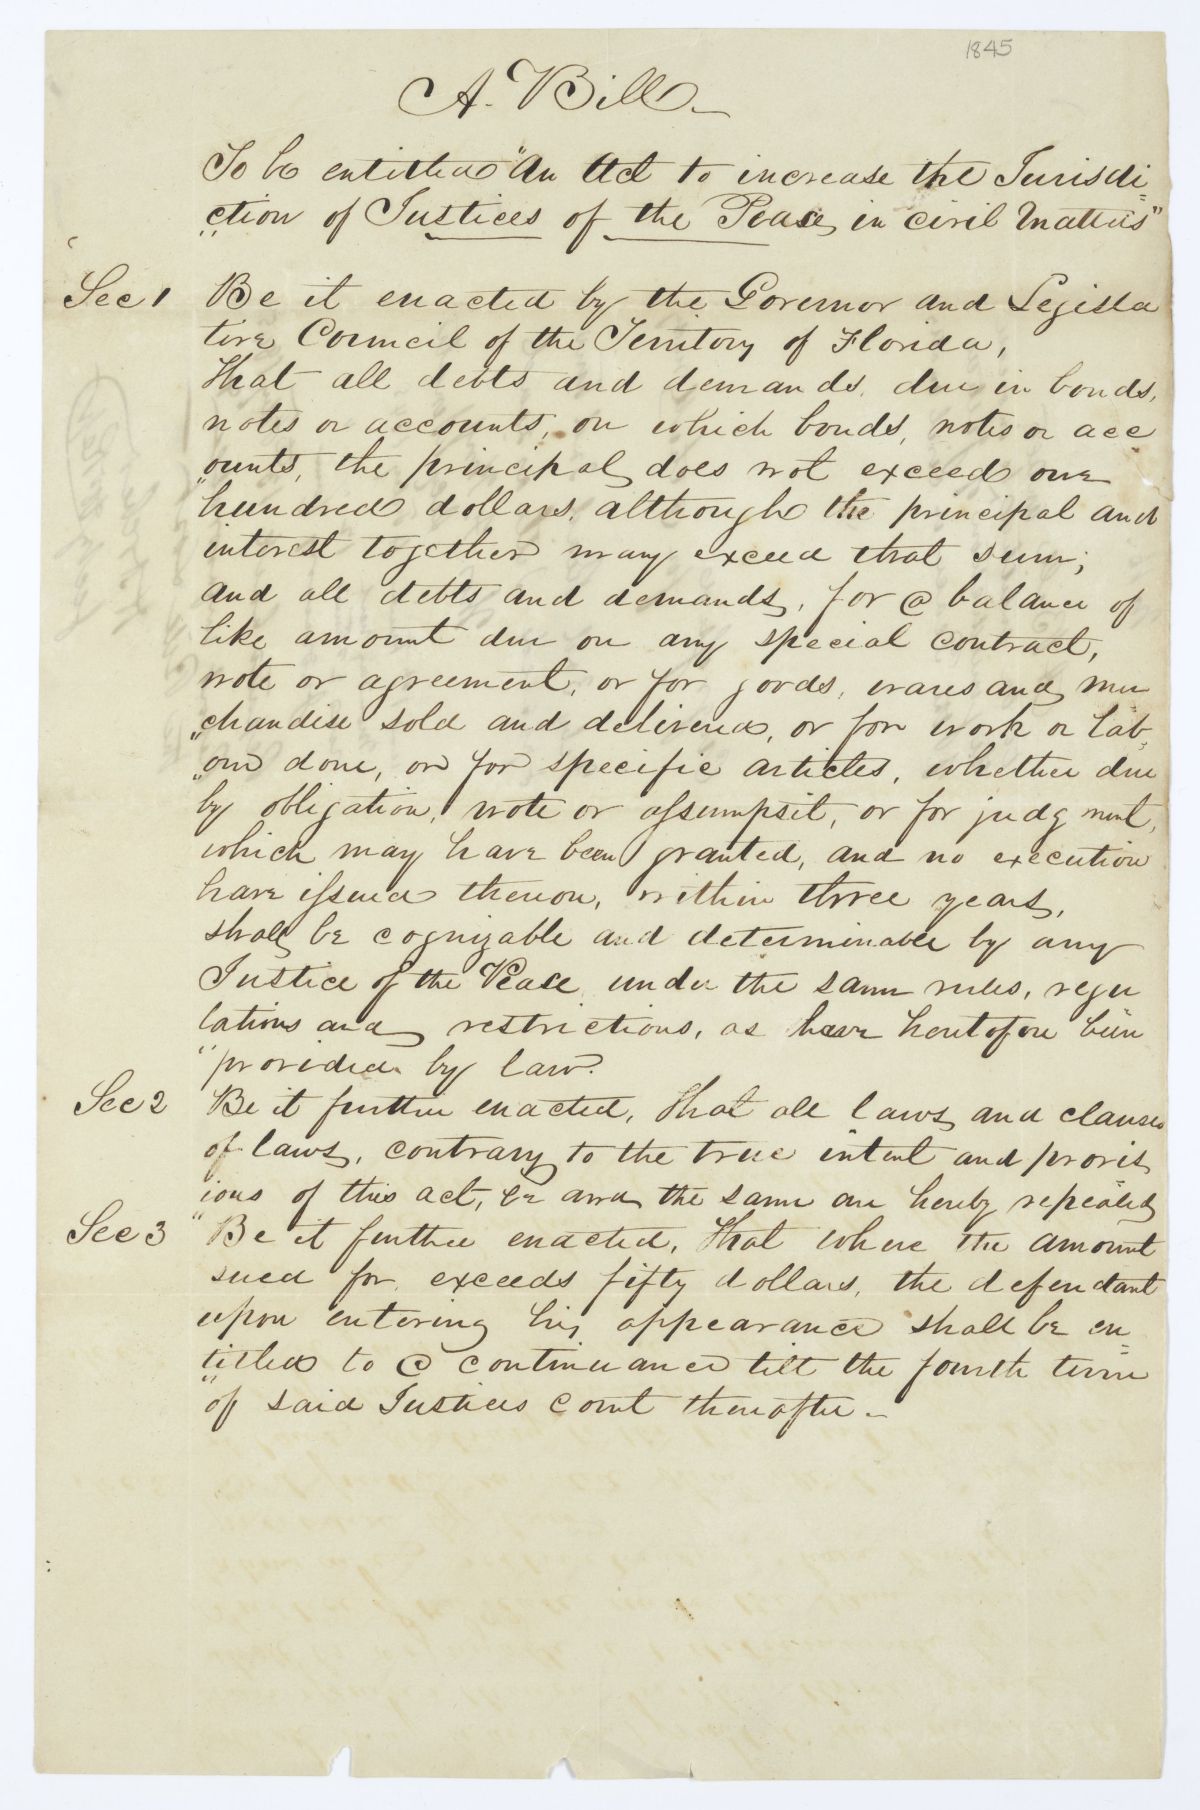 1845
A. Bill.
To be entitled "An Act to increase the Jurisdi
ction of Justices of the Peace, in civil Matters"
Sec 1 Be it enacted by the Governor and Legisla
tive Council of the Territory of Florida,
That all debts and demands, due in bonds,
notes or accounts, on which bonds, notes or acc
"ounts, the principal does not exceed one
hundred dollars, although the principal and
interest together may exceed that sum;
and all debts and demands, for a balance of
like amount due on any special contract,
note or agreement, or for goods, wares and mer
"chandise sold and delivered, or for work or lab
"our done, or for specific articles, whether due
by obligation, note or assumpsit, or for judgment,
which may have been granted, and no execution
have issued thereon, within three years,
shall be cognizable and determinable by any
Justice of the Peace under the same rules, regu
lations and restrictions, as have heretofore been
"provided by law.
Sec 2 Be it further enacted, That all laws and clauses
of laws, contrary to the true intent and provis
ions of this act, be and the same are hereby repealed
Sec 3 "Be it further enacted, That where the amount
sued for exceeds fifty dollars, the defendant
upon entering his appearance shall be en
titled to a continuance till the fourth term
"of said Justices Court thereafter.